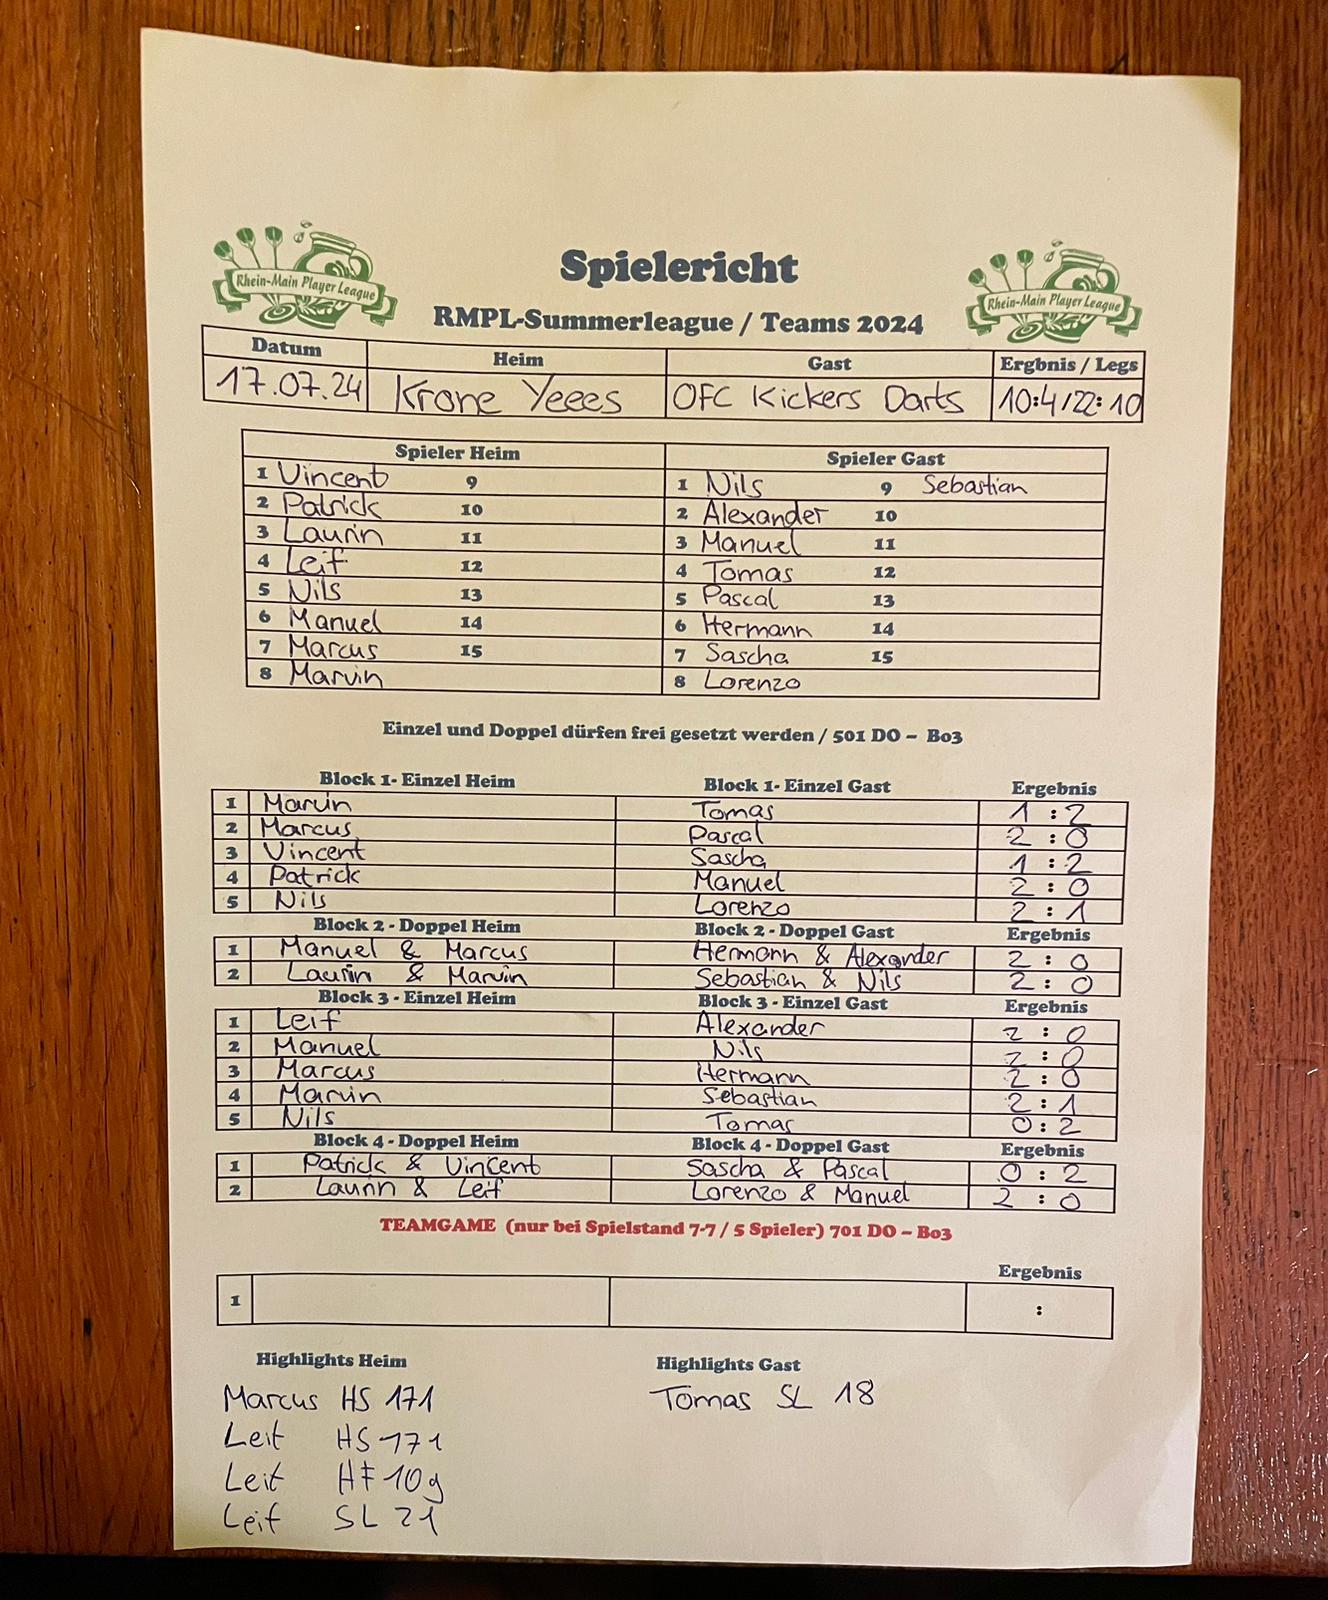 Rhein-Main Player League
Rhein-Main Player League
Spielericht
RMPL-Summerleague / Teams 2024
Datum Heim Gast Ergbnis / Legs
17.07.24 Krone Yeees OFC Kickers Darts 10:4/22:10
Spieler Heim Spieler Gast
1 Vincent 9 1 Nils 9 Sebastian
2 Patrick 10 2 Alexander 10
3 Laurin 11 3 Manuel 11
4 Leif 12 4 Tomas 12
5 Nils 13 5 Pascal 13
6 Manuel 14 6 Hermann 14
7 Marcus 15 7 Sascha 15
8 Marvin 8 Lorenzo
Einzel und Doppel dürfen frei gesetzt werden / 501 DO – Bo3
Block 1- Einzel Heim Block 1- Einzel Gast Ergebnis
1 Marvin Tomas 1 : 2
2 Marcus Pascal 2 : 0
3 Vincent Sascha 1 : 2
4 Patrick Manuel 2 : 0
5 Nils Lorenzo 2 : 1
Block 2 - Doppel Heim Block 2 - Doppel Gast Ergebnis
1 Manuel & Marcus Hermann & Alexander 2 : 0
2 Laurin & Marvin Sebastian & Nils 2 : 0
Block 3 - Einzel Heim Block 3 - Einzel Gast Ergebnis
1 Leif Alexander 2 : 0
2 Manuel Nils 2 : 0
3 Marcus Hermann 2 : 0
4 Marvin Sebastian 2 : 1
5 Nils Tomas 0 : 2
Block 4 - Doppel Heim Block 4 - Doppel Gast Ergebnis
1 Patrick & Vincent Sascha & Pascal 0 : 2
2 Laurin & Leif Lorenzo & Manuel 2 : 0
TEAMGAME (nur bei Spielstand 7-7 / 5 Spieler) 701 DO – Bo3
Ergebnis
1 :
Highlights Heim Highlights Gast
Marcus HS 171 Tomas SL 18
Leif HS 171
Leif HF 109
Leif SL 21